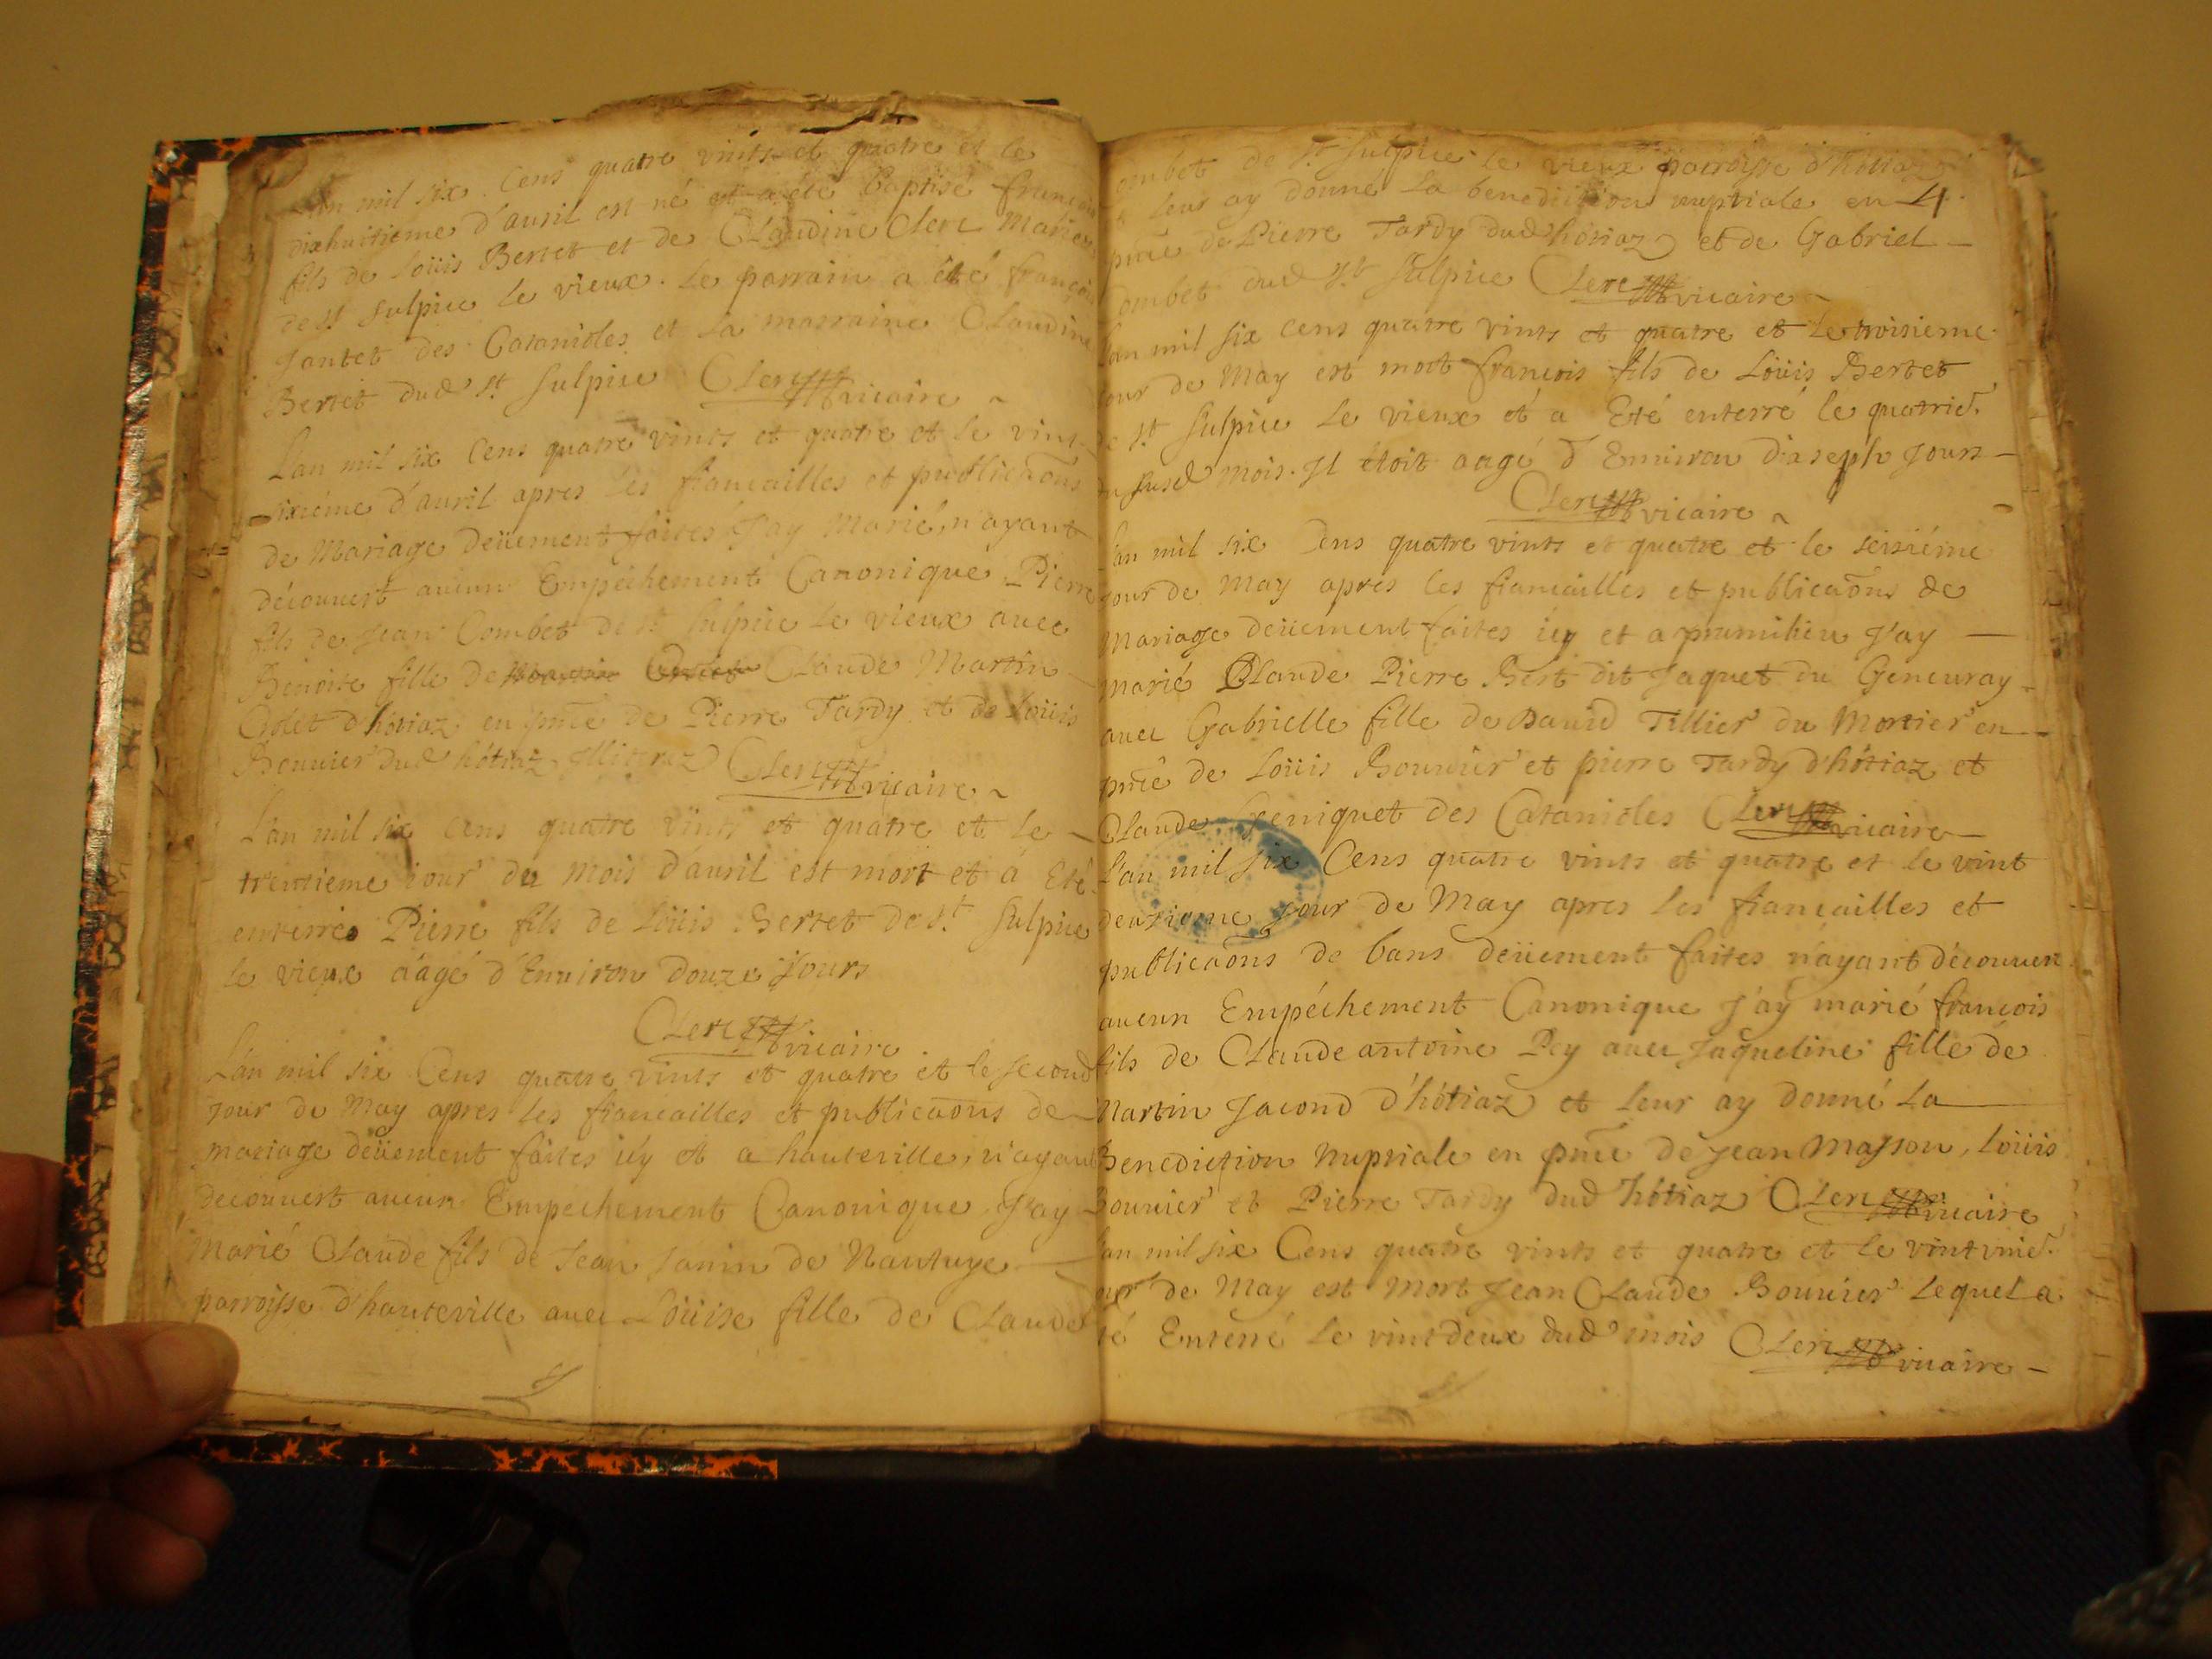 L'an mil six Cens quatre vints et quatre et le
dixhuitieme d'auril est né et a été Baptisé francois
fils de Loüis Bertet et de Claudine Clerc Mariez
de St Sulpice le vieux. Le parrain a été françois
Jantet des Catanioles et la marraine Claudine
Bertet dud St Sulpice Clerc vicaire
L'an mil six Cens quatre vints et quatre et le vint
sixiéme d'auril apres les fiancailles et publicaõns
de Mariage deüement faites J'ay Marié, n'ayant
décounert aucun Empéchement Canonique Pierre
fils de Jean Combet de St Sulpice le vieux auec
Benoite fille de Claude Martin
d'hótiaz en pnce de Pierre Tardy et de Loüis
Bouuier dud hótiaz Clerc vicaire
L'an mil six cens quatre vints et quatre et le
trentieme iour du mois d'auril est mort et á Eté
enterré Pierre fils de Loüis Bertet de St Sulpice
le vieux áagé d'Enuiron douze Jours
Clerc vicaire
L'an mil six Cens quatre vints et quatre et le second
jour de May apres les fiancailles et publicaõns de
mariage deüement faites icy et a hauteville, n'ayant
decouuert aucun Empéchement Canonique J'ay
Marié Claude fils de Jean Janin de Nantuye
parroisse d'hauteville auec Loüise fille de Claude
Combet de St Sulpice le vieux parroisse d'hótiaz
et leur ay donné la benediction nuptiale en
pnce de Pierre Tardy dud hótiaz et de Gabriel
Combet dud St Sulpice Clerc vicaire
L'an mil six cens quatre vints et quatre et le troisieme
jour de May est mort francois fils de Loüis Bertet
de St Sulpice le vieux et a Eté enterré le quatrie.
du susd mois. Jl étoit aagé d'Enuiron dixseph Jours
Clerc vicaire
L'an mil six Cens quatre vints et quatre et le seiziéme
jour de May apres les fiancailles et publicaõns de
Mariage deüement faites icy et a prumilieu J'ay
marié Claude Pierre Bert dit Jaquet du Geneuray
auec Gabrielle fille de Dauid Tillier du Mortier en
pnce de Loüis Bouuier et pierre Tardy d'hótiaz et
Claude Geniquet des Catanioles Clerc vicaire
L'an mil six Cens quatre vints et quatre et le vint
deuxieme jour de May apres les fiancailles et
publicaõns de bans deüement faites n'ayant décounert
aucun Empéchement Canonique J'ay marié francois
fils de Claude antoine Pey auec Jaqueline fille de
Martin Jacond d'hótiaz et leur ay donné la
Benediction Nuptiale en pnce de Jean Masson, Loüis
Bouuier et Pierre Tardy dud hótiaz Clerc vicaire
L'an mil six Cens quatre vints et quatre et le vintvnie.
jour de May est Mort Jean Claude Bouuier lequel a
été Enterré le vintdeux dud mois Clerc vicaire